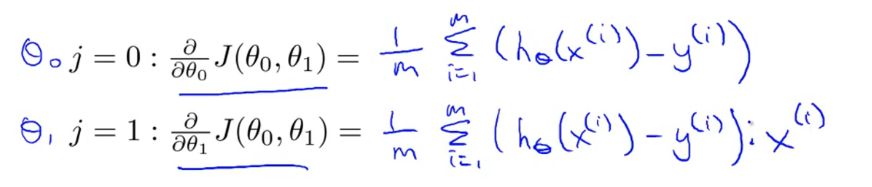 θ₀ j = 0 : ∂/∂θ₀ J(θ₀, θ₁) = 1/m Σᵢ₌₁ᵐ (hθ(x⁽ⁱ⁾) − y⁽ⁱ⁾)
θ₁ j = 1 : ∂/∂θ₁ J(θ₀, θ₁) = 1/m Σᵢ₌₁ᵐ (hθ(x⁽ⁱ⁾) − y⁽ⁱ⁾) · x⁽ⁱ⁾